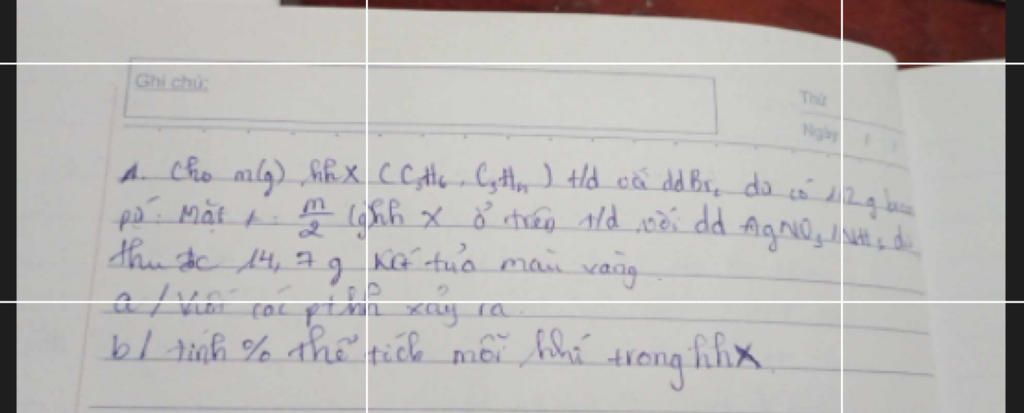 Ghi chú:
Thứ
Ngày
1. Cho m(g) hh X (C3H6, C3H4) t/d với ddBr2 dư có 112 g brom
pứ. Mặt ≠ m/2 (g)hh X ở trên t/d với dd AgNO3/NH3 dư
thu đc 14,7 g kết tủa màu vàng
a/ Viết các pthh xảy ra.
b/ tính % thể tích mỗi khí trong hhX